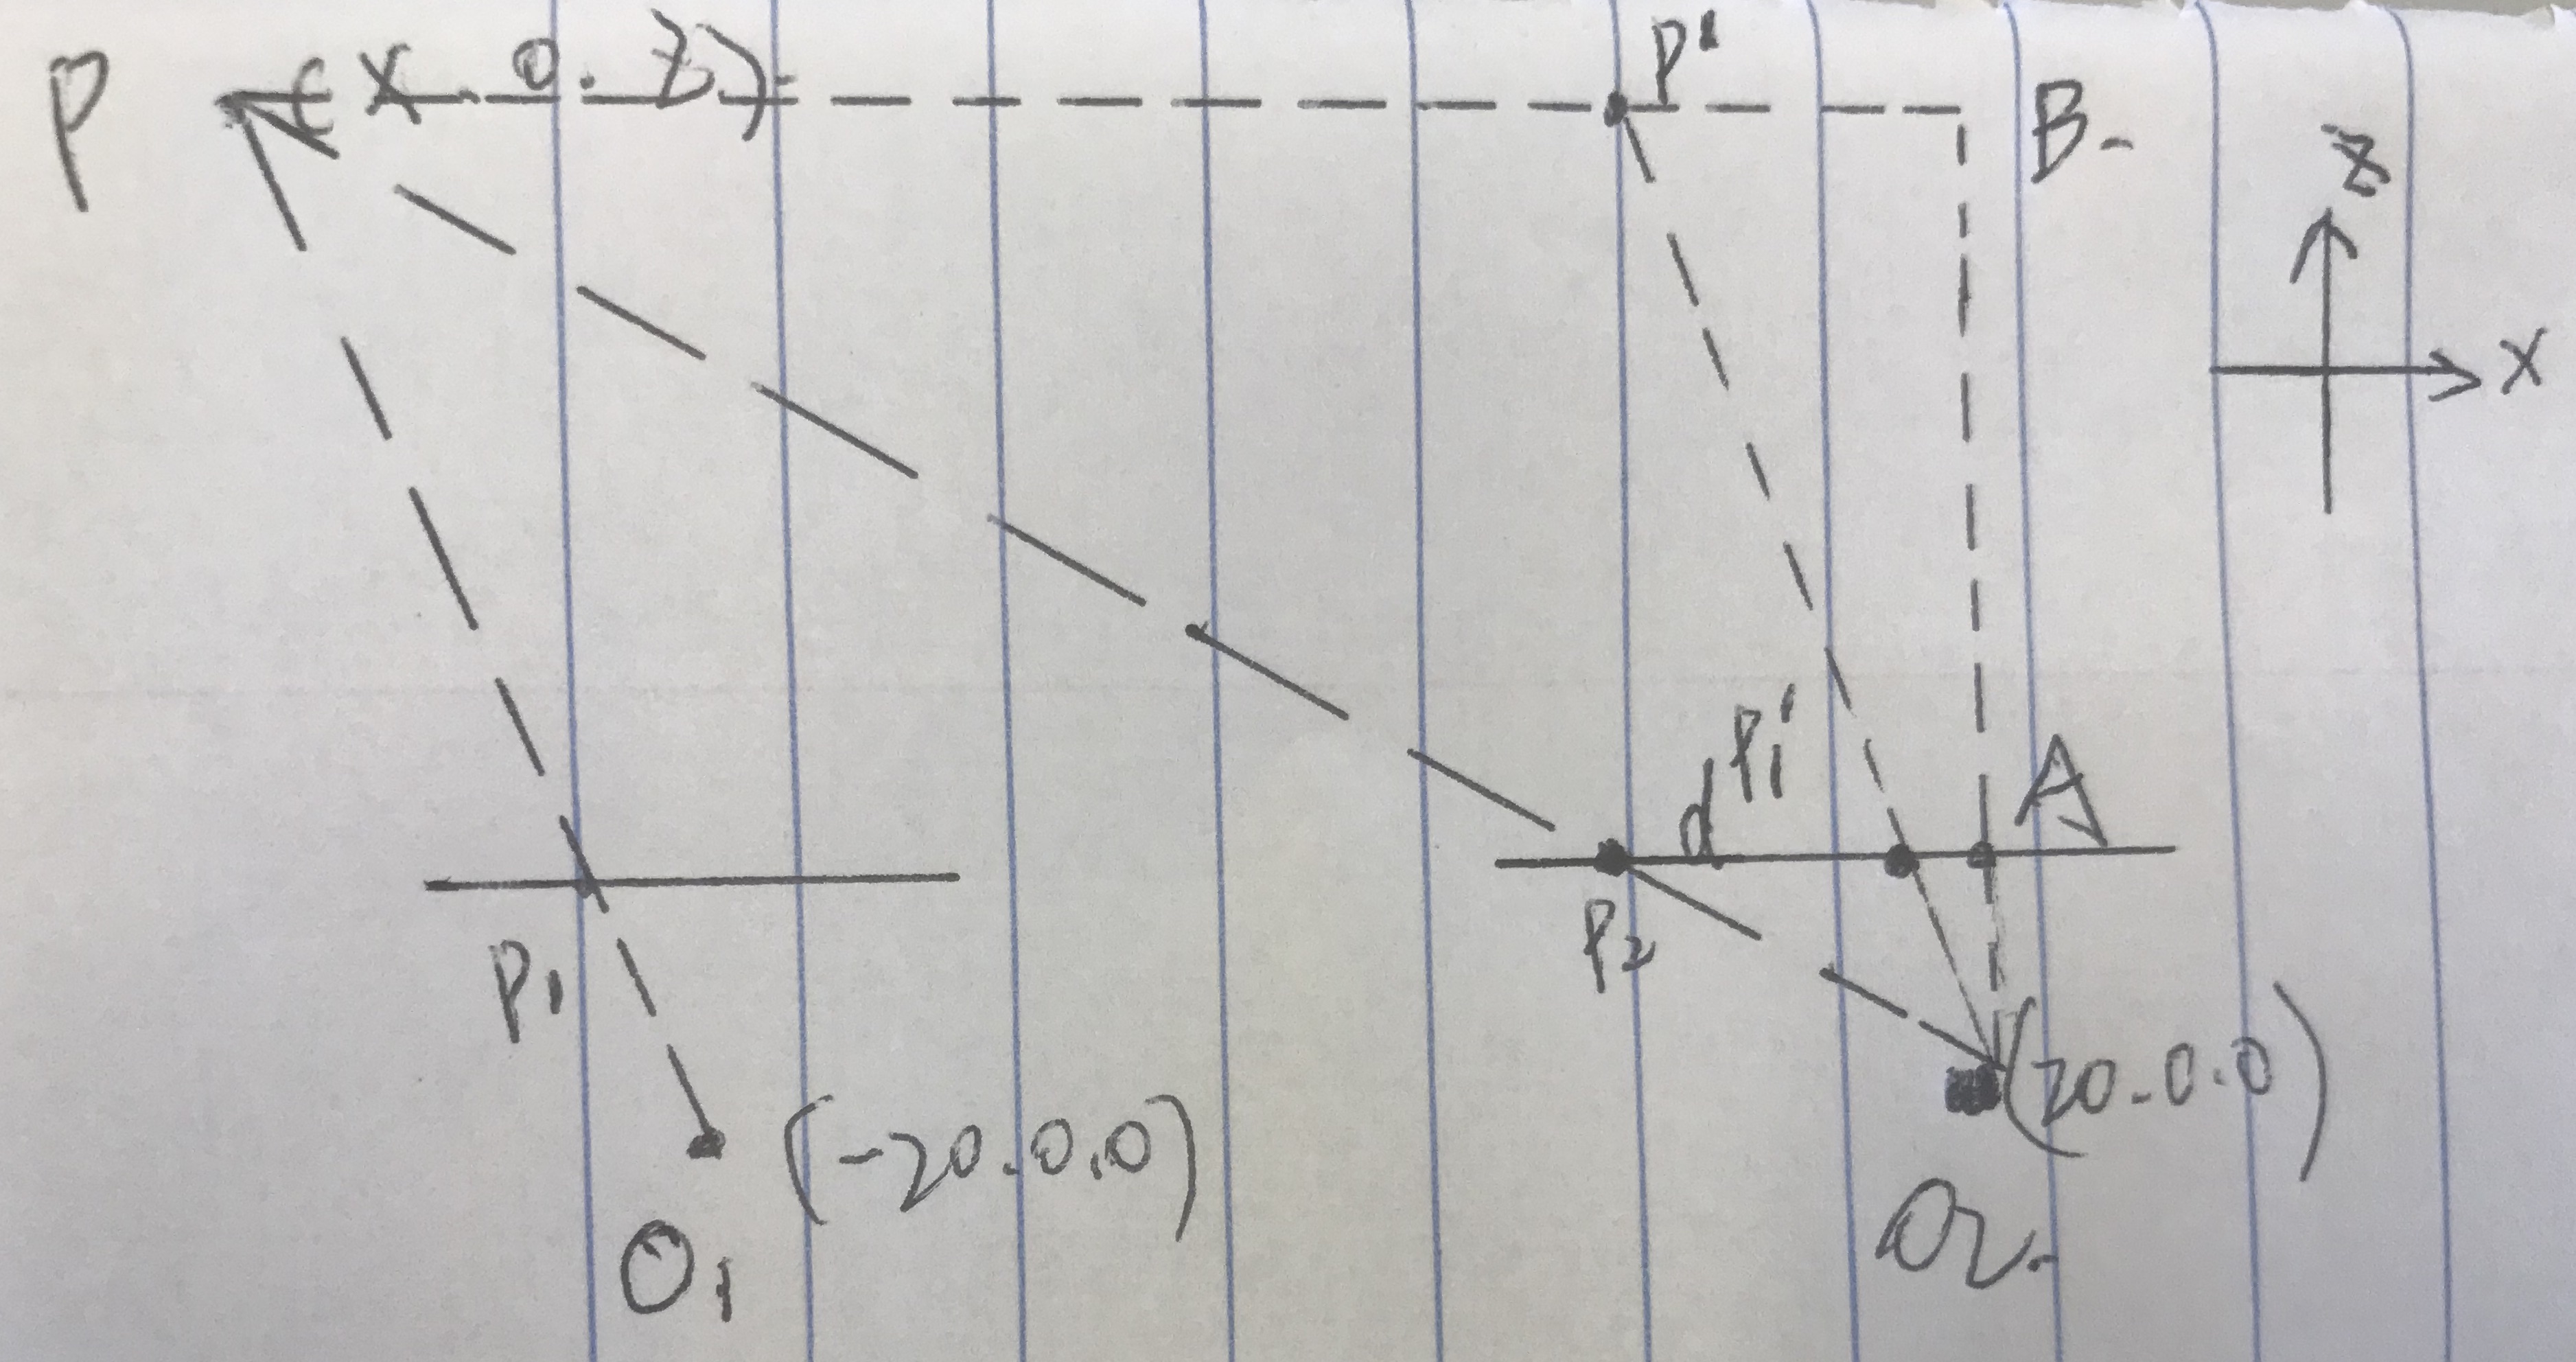 P (X. 0. Z).
P'
B.
Z
X
d
P₁'
A
P₁
P₂
(-20.0.0)
(20.0.0)
O₁
O₂.